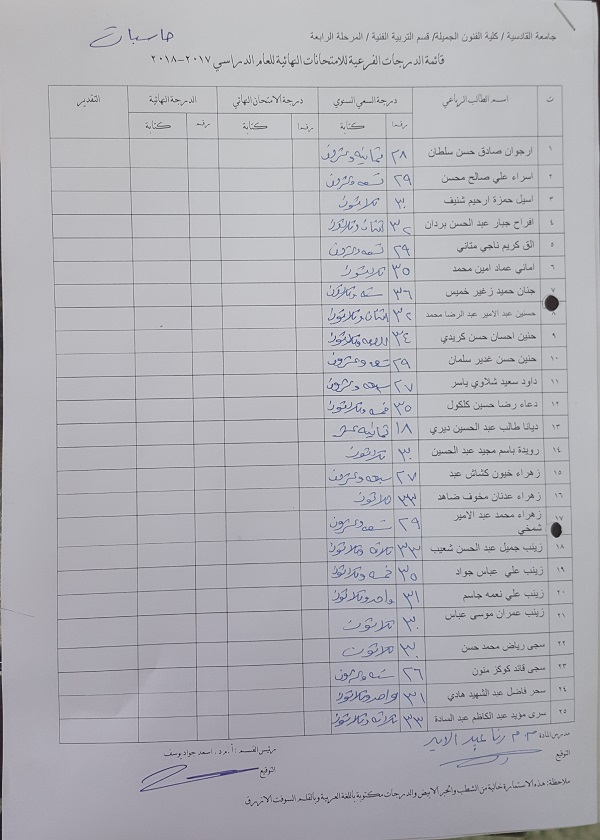 جامعة القادسية / كلية الفنون الجميلة/ قسم التربية الفنية / المرحلة الرابعة
حاسبات
قائمة الدرجات الفرعية للامتحانات النهائية للعام الدراسي ٢٠١٧-٢٠١٨
ت اسم الطالب الرباعي درجة السعي السنوي درجة الامتحان النهائي الدرجة النهائية التقدير
رقما كتابة رقما كتابة رقما كتابة
١ ارجوان صادق حسن سلطان ٢٨ ثمانية وعشرون
٢ اسراء علي صالح محسن ٢٩ تسعة وعشرون
٣ اسيل حمزة ارحيم شنيف ٣٠ ثلاثون
٤ افراح جبار عبد الحسن بردان ٣٢ اثنان وثلاثون
٥ الق كريم ناجي متاني ٢٩ تسعة وعشرون
٦ اماني عماد امين محمد ٣٥ ثلاثون
٧ جنان حميد زغير خميس ٣٦ ستة وثلاثون
٨ حسنين عبد الامير عبد الرضا محمد ٣٢ اثنان وثلاثون
٩ حنين احسان حسن كريدي ٣٤ اربعة وثلاثون
١٠ حنين حسن غدير سلمان ٢٩ تسعة وعشرون
١١ داود سعيد شلاوي ياسر ٢٧ سبعة وعشرون
١٢ دعاء رضا حسين كلكول ٣٥ خمسة وثلاثون
١٣ ديانا طالب عبد الحسين ديري ١٨ ثمانية عشر
١٤ رويدة باسم مجيد عبد الحسين ٣٠ ثلاثون
١٥ زهراء خيون كشاش عبد ٢٧ سبعة وعشرون
١٦ زهراء عدنان مخوف ضاهد ثلاثون
١٧ زهراء محمد عبد الامير شمخي ٢٩ تسعة وعشرون
١٨ زينب جميل عبد الحسن شعيب ٣٣ ثلاثة وثلاثون
١٩ زينب علي عباس جواد ٣٥ خمسة وثلاثون
٢٠ زينب علي نعمه جاسم ٣١ واحد وثلاثون
٢١ زينب عمران موسى عباس ٣٠ ثلاثون
٢٢ سجى رياض محمد حسن ٣٠ ثلاثون
٢٣ سجى قائد كوكز منون ٢٦ ستة وعشرون
٢٤ سحر فاضل عبد الشهيد هادي ٣١ واحد وثلاثون
٢٥ سرى مؤيد عبد الكاظم عبد السادة ٣٣ ثلاثة وثلاثون
مدرس المادة م.م رنا عبد الامير
رئيس القسم : أ.م.د. اسعد جواد يوسف
التوقيع
التوقيع
ملاحظة: هذه الاستمارة خالية من الشطب والحبر الابيض والدرجات مكتوبة باللغة العربية وبالقلم السوفت الازرق